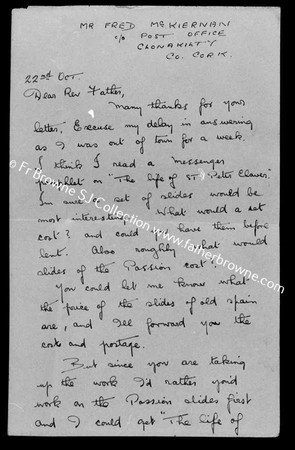 MR FRED McKIERNAN
c/o POST OFFICE
CLONAKILTY
Co. CORK.
22nd Oct.
Dear Rev Father,
Many thanks for your
letter. Excuse my delay in answering
as I was out of town for a week.
I think I read a messenger
pamphlet on "The life of St Peter Claver."
I'm sure a set of slides would be
most interesting. What would a set
cost? and could we have them before
lent. Also roughly what would
slides of the Passion cost.
You could let me know what
the price of the slides of old Spain
are, and I'll forward you the
costs and postage.
But since you are taking
up the work I'd rather you'd
work on the Passion slides first
and I could get "The life of
© Fr Browne SJ Collection www.fatherbrowne.com